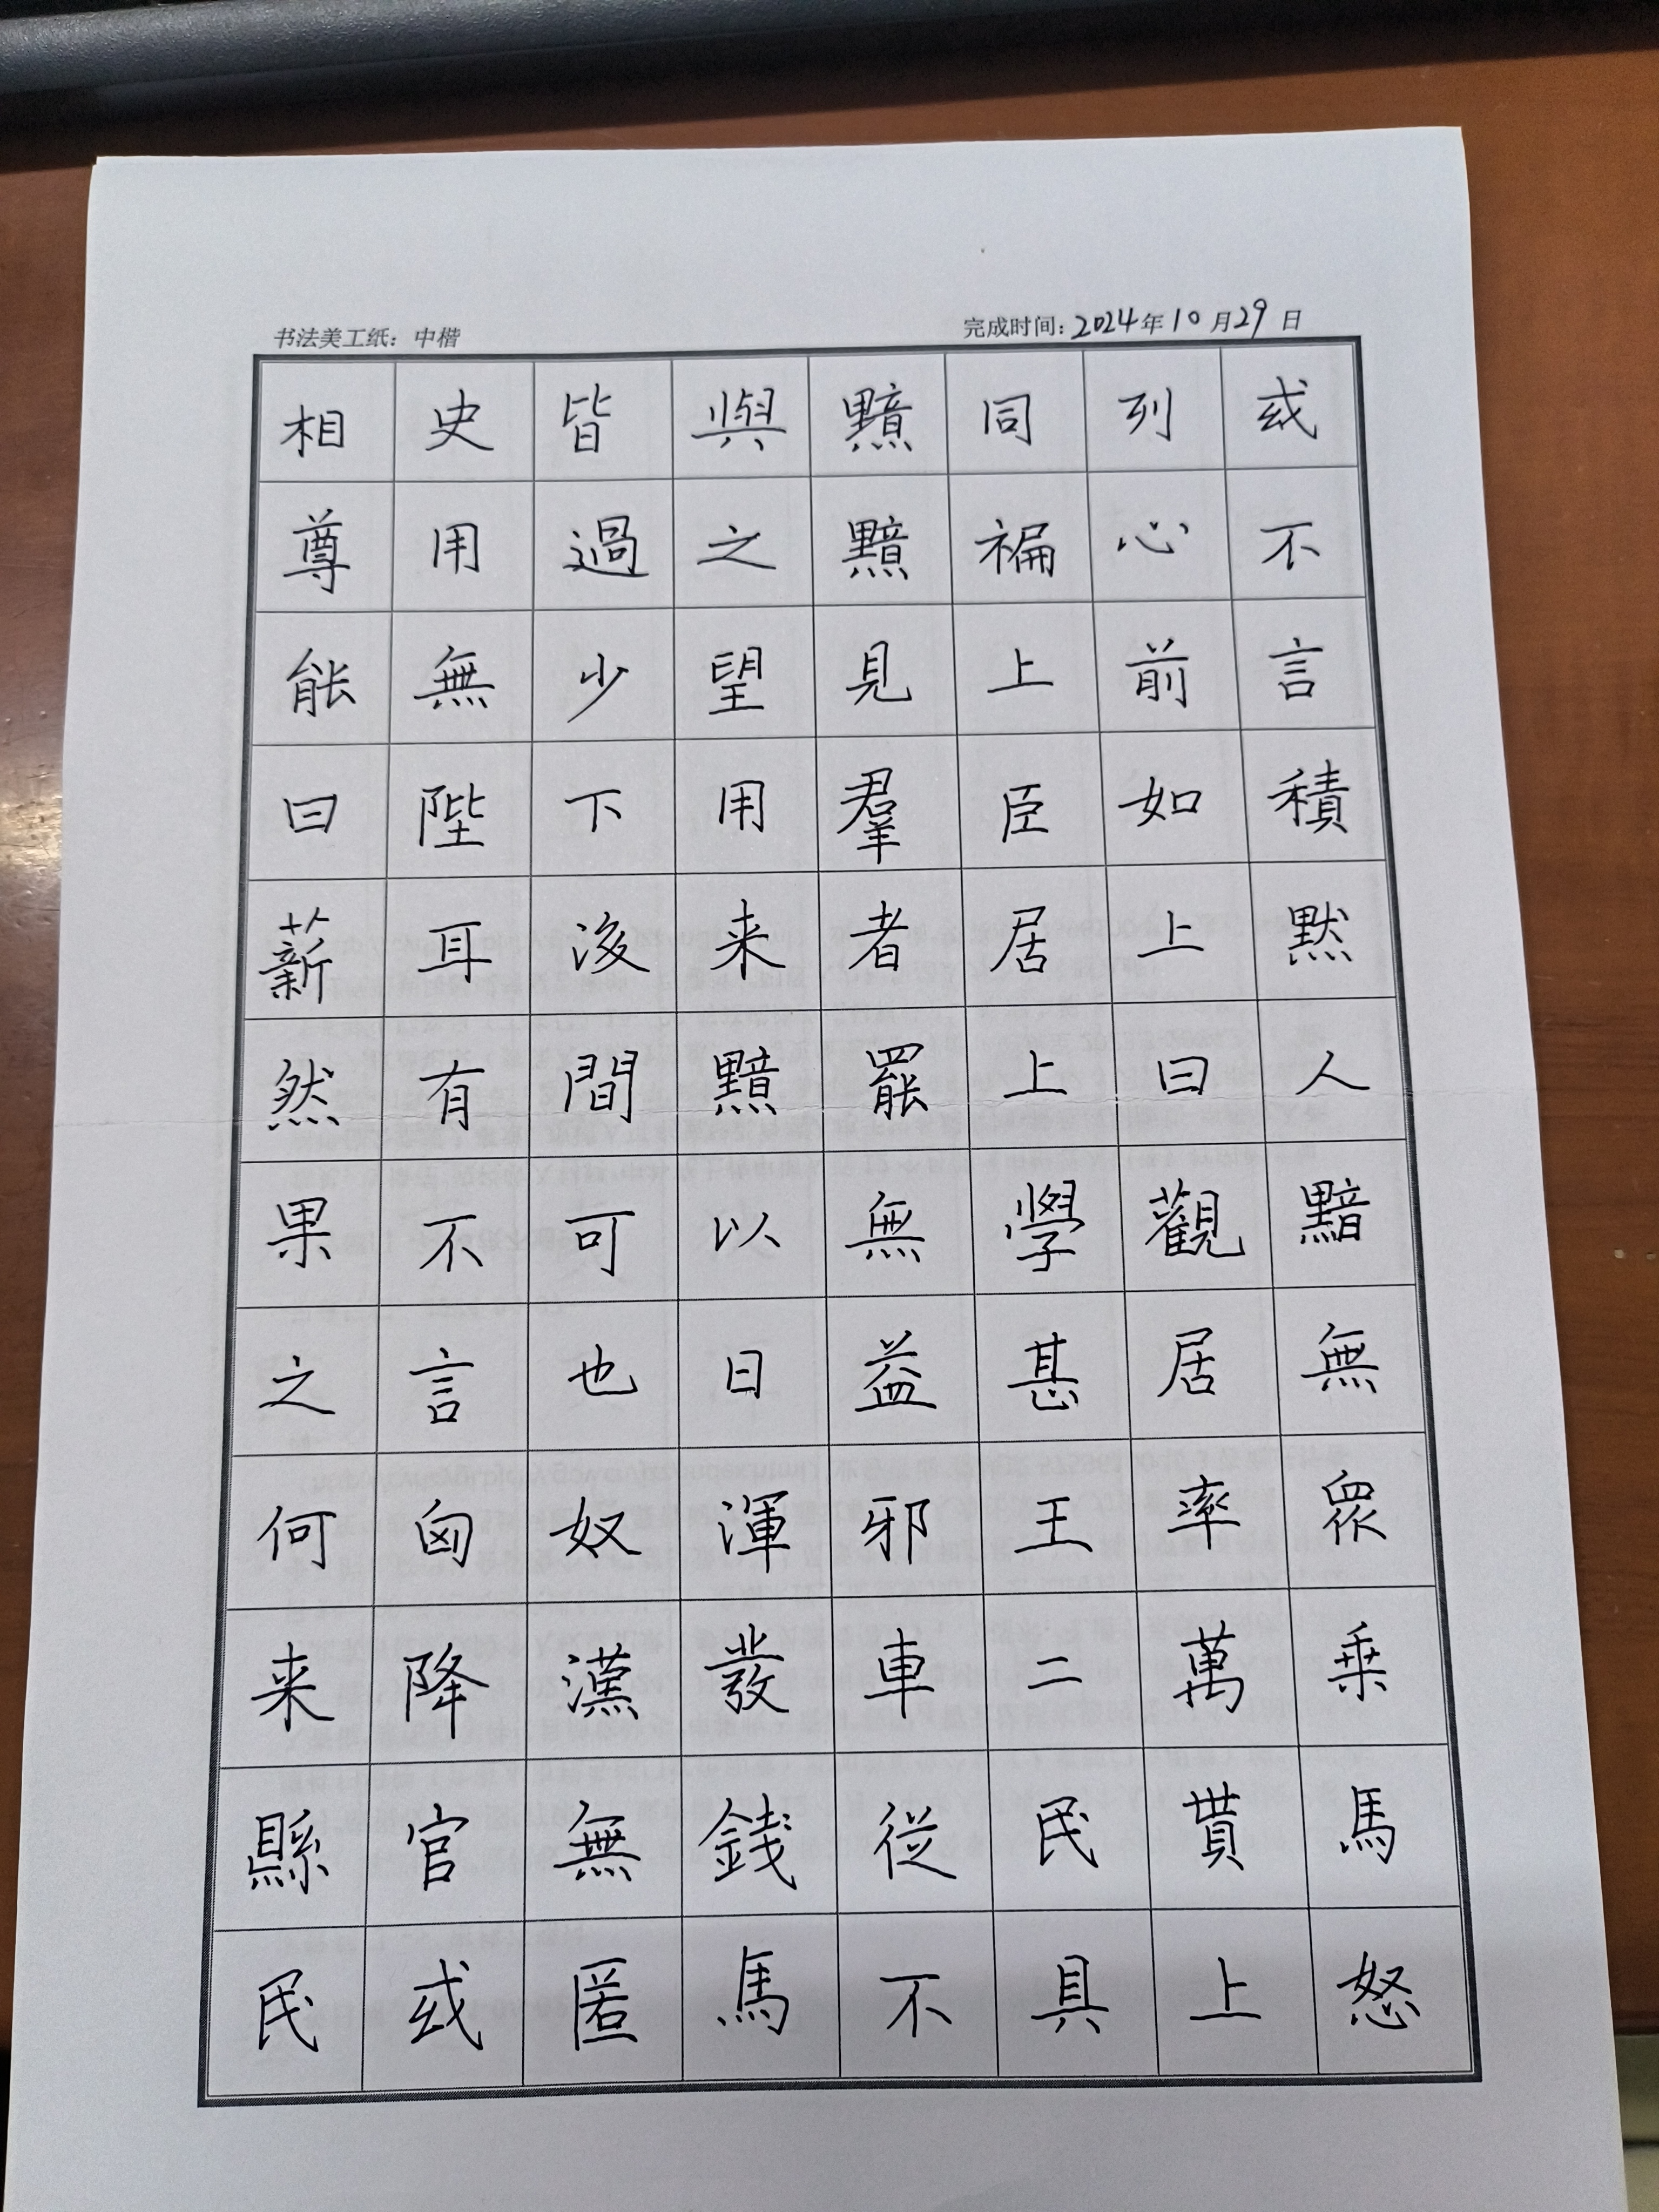 书法美工纸：中楷
完成时间：2024年10月29日
相史皆與黯同列或
尊用過之黯褊心不
能無少望見上前言
曰陛下用羣臣如積
薪耳後来者居上默
然有間黯罷上曰人
果不可以無學觀黯
之言也日益甚居無
何匈奴渾邪王率眾
来降漢發車二萬乗
縣官無錢從民貰馬
民或匿馬不具上怒